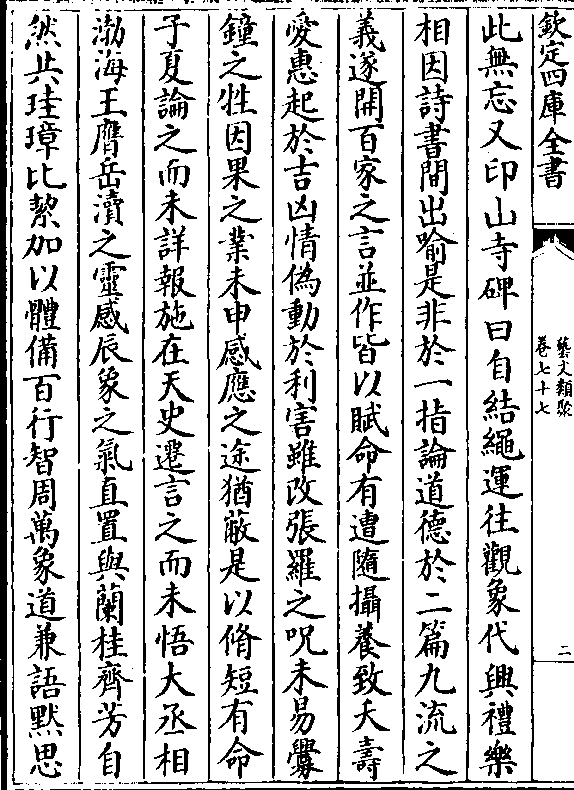 欽定四庫全書
藝文類聚
卷七十七
二
此無忘又印山寺碑曰自結繩運往觀象代興禮樂
相因詩書間出喻是非於一指論道德於二篇九流之
義遂開百家之言並作皆以賦命有遭隨攝養致夭壽
愛惠起於吉凶情偽動於利害雖改張羅之呪未易釁
鐘之牲因果之業未申感應之途猶蔽是以脩短有命
子夏論之而未詳報施在天史遷言之而未悟大丞相
渤海王膺岳瀆之靈感辰象之氣直置與蘭桂齊芳自
然共珪璋比絜加以體備百行智周萬象道兼語默思